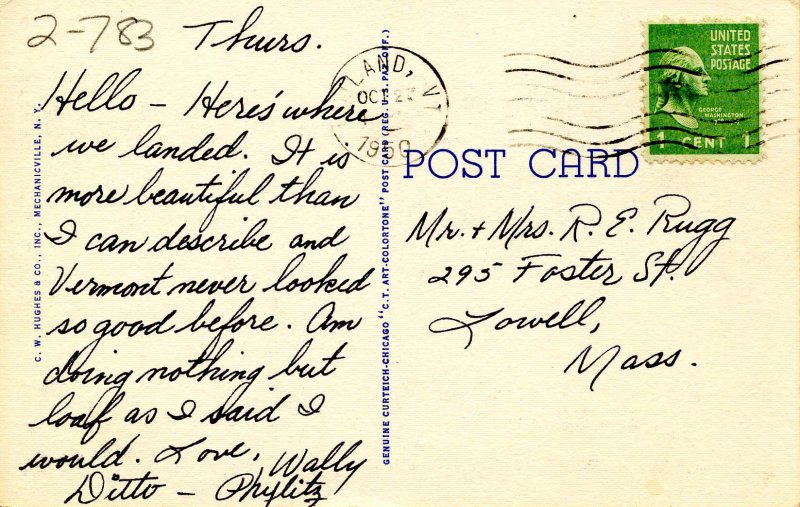 2-783
Thurs.
Hello - Here's where
we landed. It is
more beautiful than
I can describe and
Vermont never looked
so good before. Am
doing nothing but
loaf as I said I
would. Love, Wally
Ditto - Phylitz
C. W. HUGHES & CO., INC., MECHANICVILLE, N. Y.
GENUINE CURTEICH-CHICAGO "C.T. ART-COLORTONE" POST CARD (REG. U.S. PAT. OFF.)
LAND, VT
OCT 27
1950
POST CARD
UNITED
STATES
POSTAGE
GEORGE
WASHINGTON
1 CENT 1
Mr. + Mrs. R. E. Rugg
295 Foster St.
Lowell,
Mass.